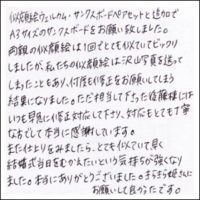 似顔絵ウェルカム・サンクスボードペアセットと追加で
A3サイズのサンクスボードをお願い致しました。
両親の似顔絵は1回でとても似ていてビックリ
しましたが、私たちの似顔絵は沢山写真を送って
しまったこともあり、何度も修正をお願いしてしまう
結果になりました。ただ担当して下さった後藤様には
いつも早急に修正対応して下さり、対応もとても丁寧
なもでして本当に感謝しています。
また仕上りを非ましたら、とても似ていて早く
結婚式当日をむかえたいという気持ちが強くなり
ました。本当にありがとうございました。きらきら絵さんに
お願いして良かったです。